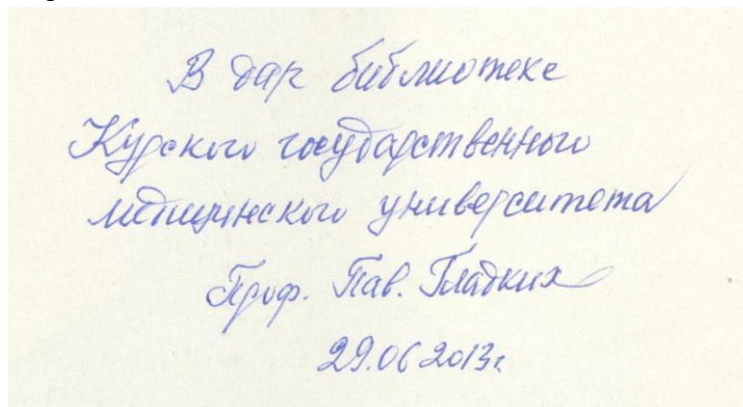 В дар библиотеке
Курского государственного
медицинского университета
Проф. Пав. Гладких
29.06 2013г.